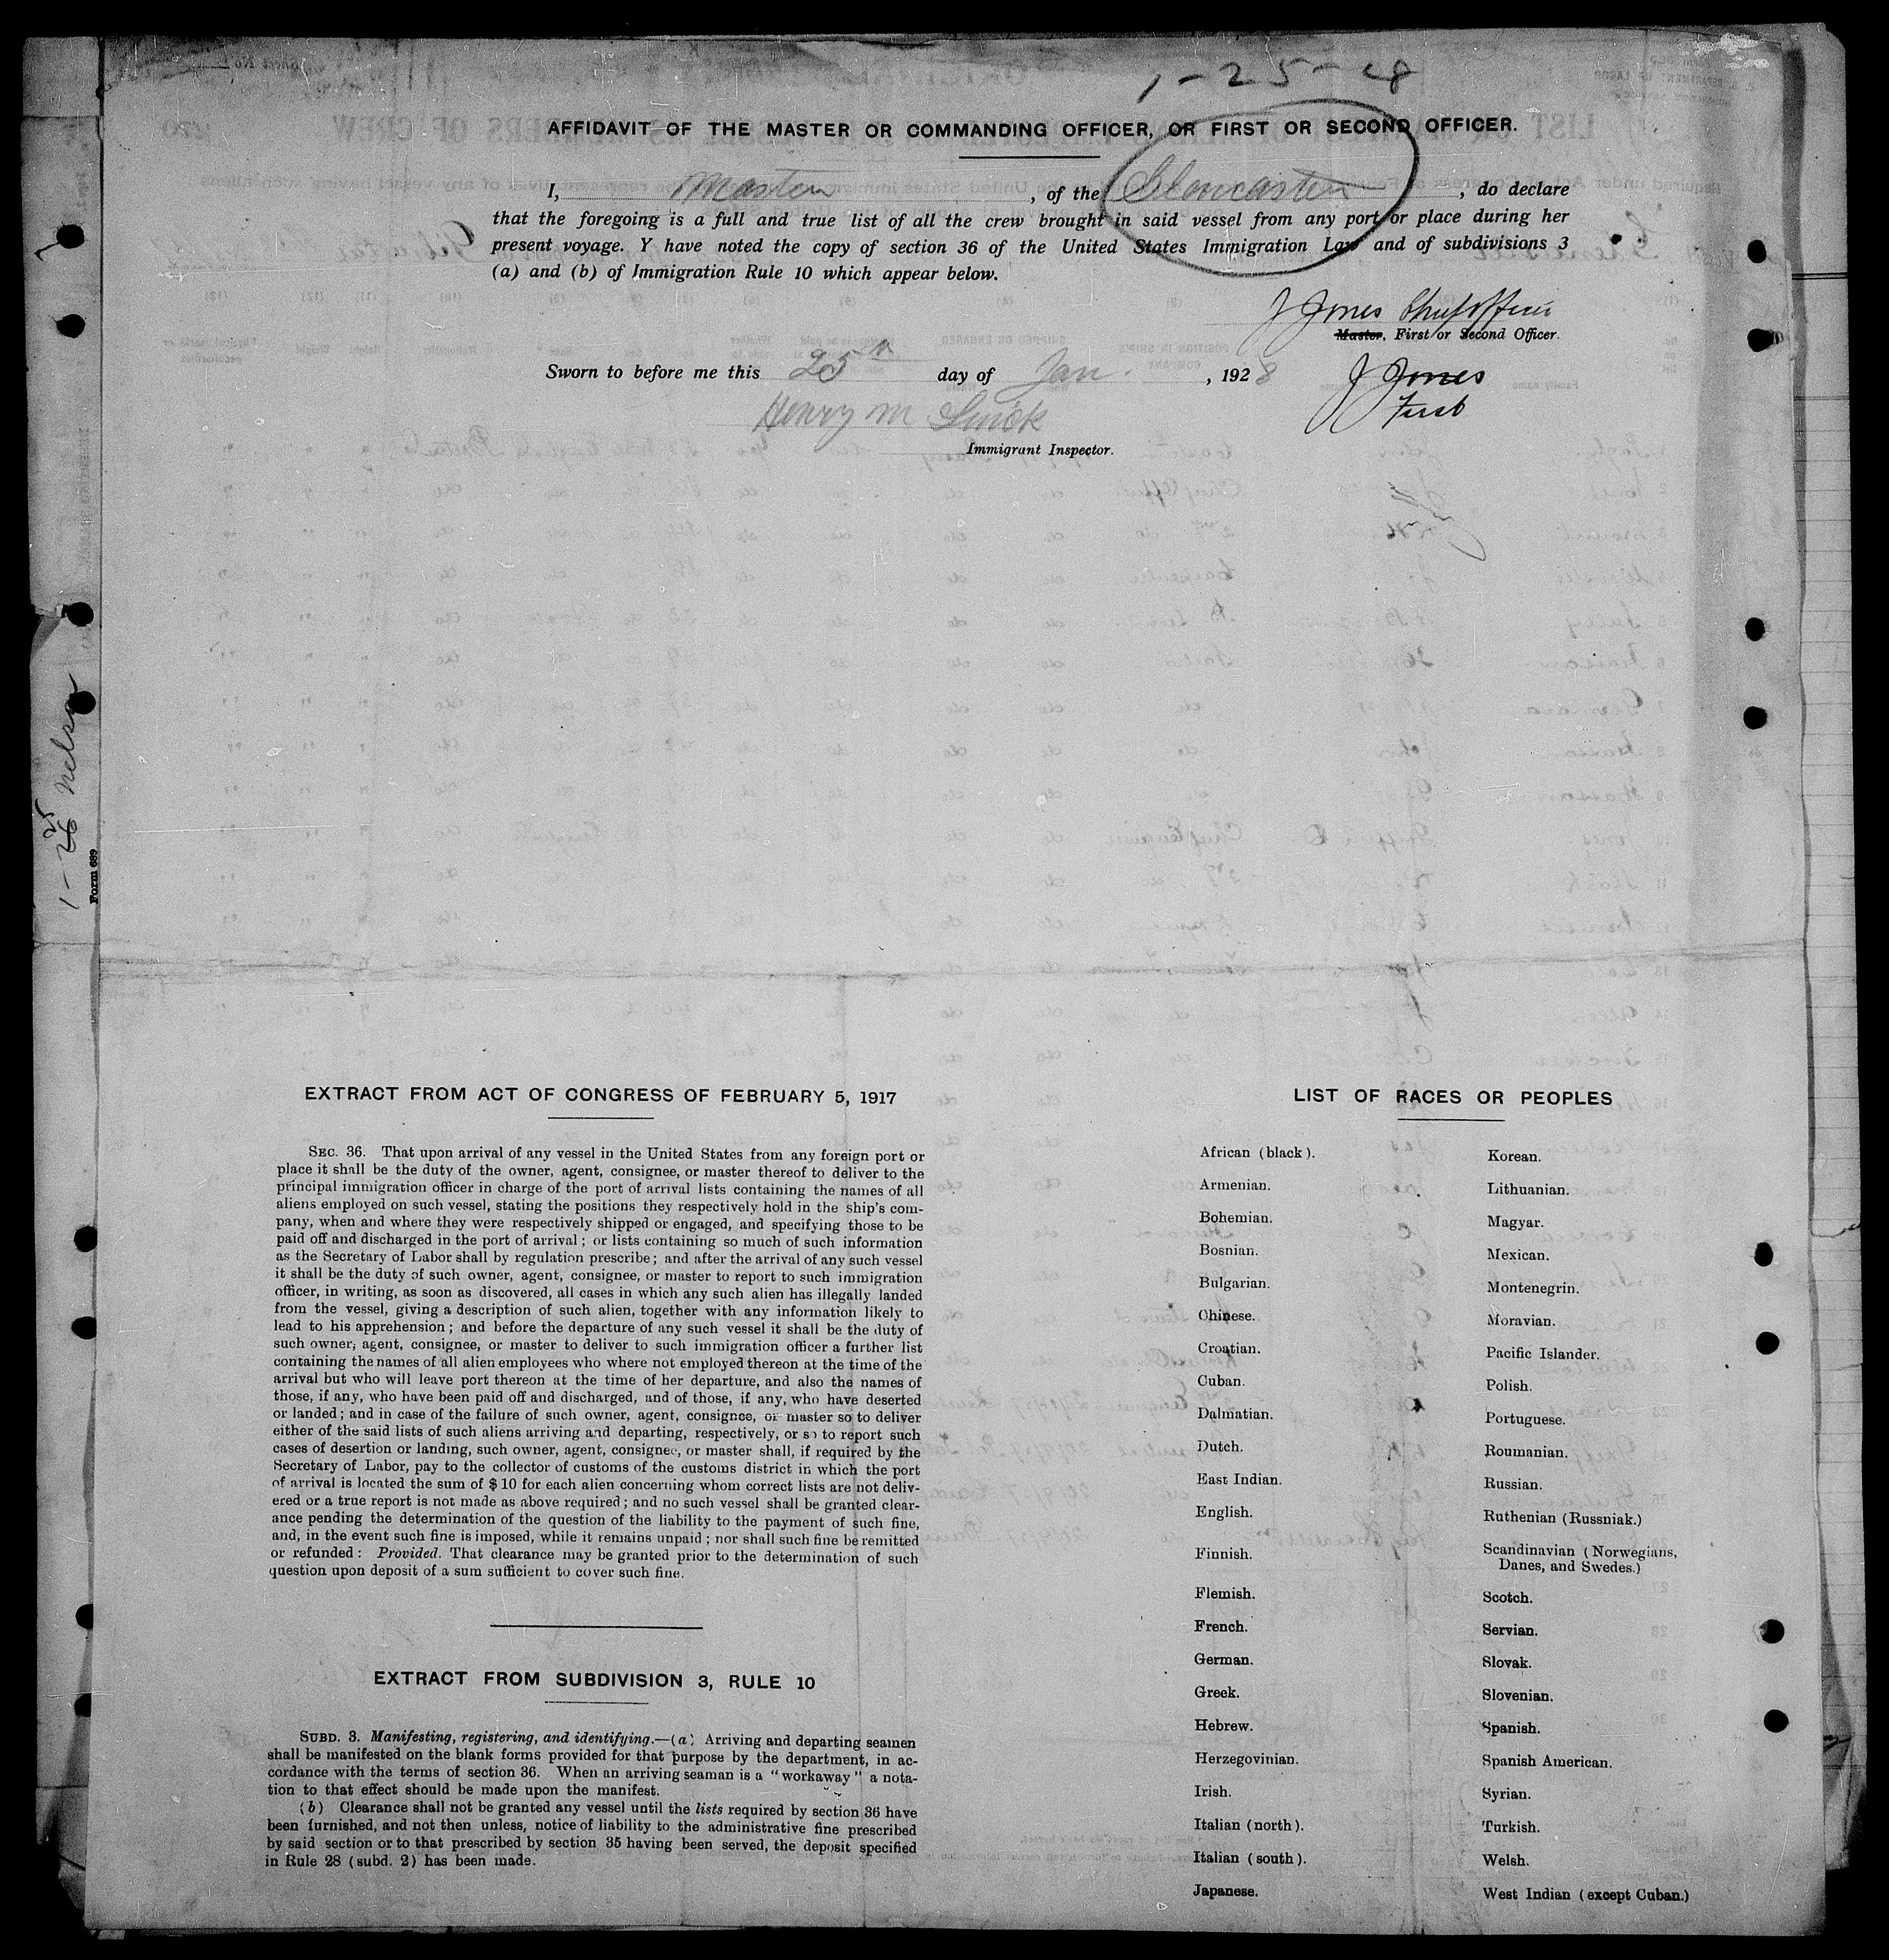 1-25-28
AFFIDAVIT OF THE MASTER OR COMMANDING OFFICER, OR FIRST OR SECOND OFFICER.
I, Master, of the, do declare
that the foregoing is a full and true list of all the crew brought in said vessel from any port or place during her
present voyage. Y have noted the copy of section 36 of the United States Immigration Law and of subdivisions 3
(a) and (b) of Immigration Rule 10 which appear below.
J Jones Chief officer
Master, First or Second Officer.
Sworn to before me this 25th day of Jan., 1928
J Jones
First
Henry M
Immigrant Inspector.
1-25 Nelson
Form 689
EXTRACT FROM ACT OF CONGRESS OF FEBRUARY 5, 1917
SEC. 36. That upon arrival of any vessel in the United States from any foreign port or
place it shall be the duty of the owner, agent, consignee, or master thereof to deliver to the
principal immigration officer in charge of the port of arrival lists containing the names of all
aliens employed on such vessel, stating the positions they respectively hold in the ship's com-
pany, when and where they were respectively shipped or engaged, and specifying those to be
paid off and discharged in the port of arrival; or lists containing so much of such information
as the Secretary of Labor shall by regulation prescribe; and after the arrival of any such vessel
it shall be the duty of such owner, agent, consignee, or master to report to such immigration
officer, in writing, as soon as discovered, all cases in which any such alien has illegally landed
from the vessel, giving a description of such alien, together with any information likely to
lead to his apprehension; and before the departure of any such vessel it shall be the duty of
such owner, agent, consignee, or master to deliver to such immigration officer a further list
containing the names of all alien employees who where not employed thereon at the time of the
arrival but who will leave port thereon at the time of her departure, and also the names of
those, if any, who have been paid off and discharged, and of those, if any, who have deserted
or landed; and in case of the failure of such owner, agent, consignee, or master so to deliver
either of the said lists of such aliens arriving and departing, respectively, or so to report such
cases of desertion or landing, such owner, agent, consignee, or master shall, if required by the
Secretary of Labor, pay to the collector of customs of the customs district in which the port
of arrival is located the sum of $10 for each alien concerning whom correct lists are not deliv-
ered or a true report is not made as above required; and no such vessel shall be granted clear-
ance pending the determination of the question of the liability to the payment of such fine,
and, in the event such fine is imposed, while it remains unpaid; nor shall such fine be remitted
or refunded: Provided. That clearance may be granted prior to the determination of such
question upon deposit of a sum sufficient to cover such fine.
EXTRACT FROM SUBDIVISION 3, RULE 10
SUBD. 3. Manifesting, registering, and identifying.—(a) Arriving and departing seamen
shall be manifested on the blank forms provided for that purpose by the department, in ac-
cordance with the terms of section 36. When an arriving seaman is a "workaway" a nota-
tion to that effect should be made upon the manifest.
(b) Clearance shall not be granted any vessel until the lists required by section 36 have
been furnished, and not then unless, notice of liability to the administrative fine prescribed
by said section or to that prescribed by section 35 having been served, the deposit specified
in Rule 28 (subd. 2) has been made.
LIST OF RACES OR PEOPLES
African (black).
Armenian.
Bohemian.
Bosnian.
Bulgarian.
Chinese.
Croatian.
Cuban.
Dalmatian.
Dutch.
East Indian.
English.
Finnish.
Flemish.
French.
German.
Greek.
Hebrew.
Herzegovinian.
Irish.
Italian (north).
Italian (south).
Japanese.
Korean.
Lithuanian.
Magyar.
Mexican.
Montenegrin.
Moravian.
Pacific Islander.
Polish.
Portuguese.
Roumanian.
Russian.
Ruthenian (Russniak.)
Scandinavian (Norwegians,
Danes, and Swedes.)
Scotch.
Servian.
Slovak.
Slovenian.
Spanish.
Spanish American.
Syrian.
Turkish.
Welsh.
West Indian (except Cuban.)